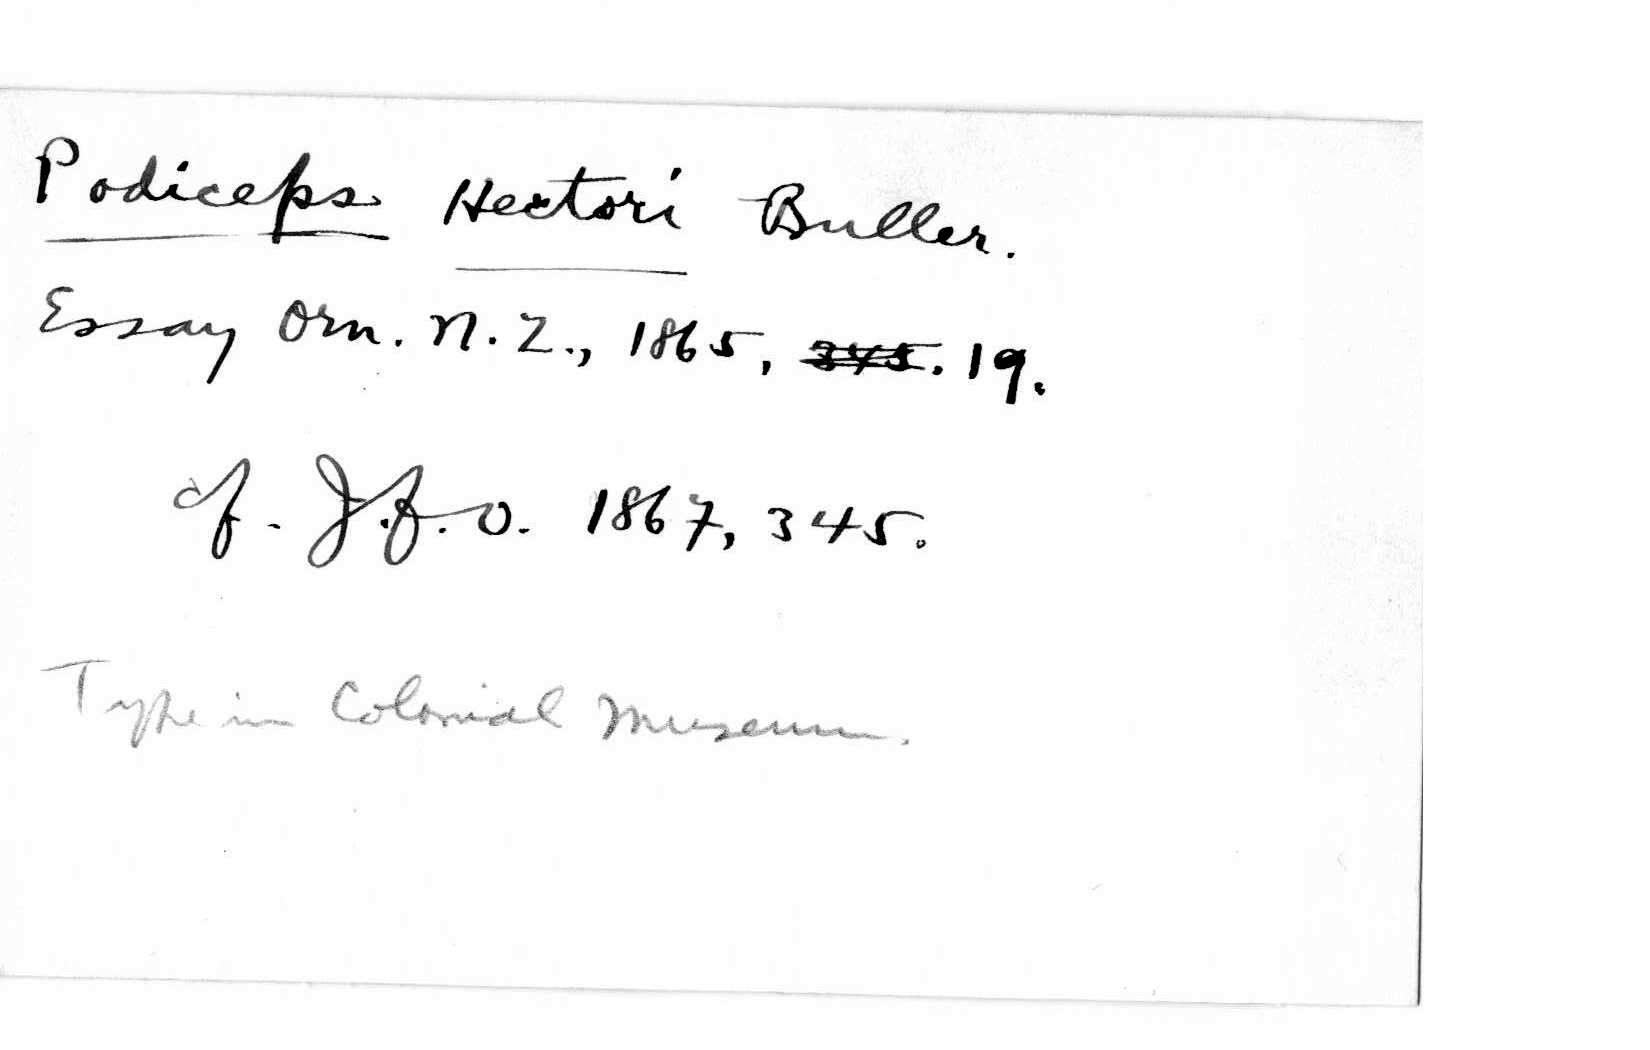 Podiceps Hectori Buller.
Essay Orn. N.Z., 1865, 345. 19.
cf. J.f.O. 1867, 345.
Type in Colonial Museum.